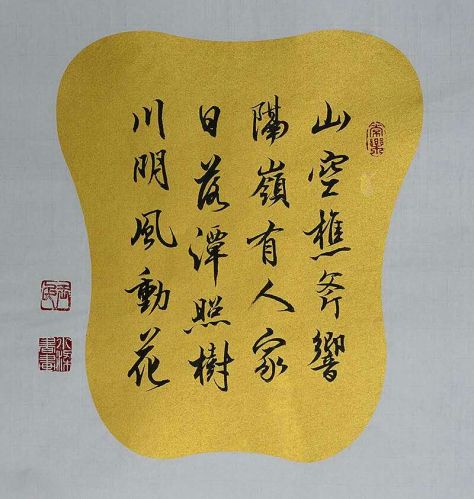 山空樵斧響
隔嶺有人家
日落潭照樹
川明風動花